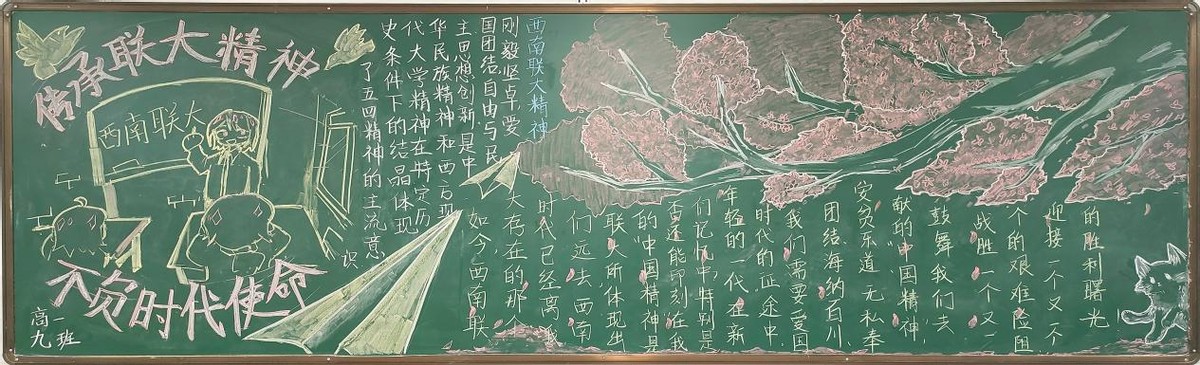 传承联大精神
西南联大
不负时代使命
高一
九班
西南联大精神
刚毅坚卓,爱
国团结,自由与民
主思想创新,是中
华民族精神和西方现
代大学精神在特定历
史条件下的结晶体现
了五四精神的主流意
识
如今,西南联
大存在的那个
时代已经离我
们远去,西南
联大所体现出
的“中国精神”是
否还能印刻在我
们记忆中,特别是
年轻的一代,在新
时代的征途中,
我们需要爱国
团结,海纳百川,
安贫乐道,无私奉
献的“中国精神”,
鼓舞我们去
战胜一个又一
个的艰难险阻
迎接一个又一个
的胜利曙光